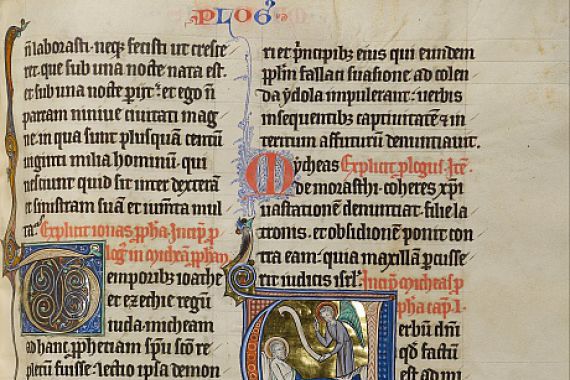 PLOG᾽
n̄ laborasti· neq; fecisti ut cresce
ret· que sub una nocte nata est·
et sub una nocte ꝑijt· et ego n̄
parcam niniue ciuitati mag
ne· in qua sunt plusquā centū
uiginti milia hominū· qui
nesciunt quid sit inter dexterā
et sinistram suā et ium̄ta mul
ta· Explicit ionas ꝓpha· Incip̄ ꝓ
log᾽ in micheā ꝓpham
Temporibꝫ ioathe
et ezechie regū
iuda· micheam
ad hanc ꝓphetiam sp̄u sc̄o re
pletū fuisse· lectio ipsa demon
ri et p̄ncipibꝫ eius qui eundem
pp̄lm fallaci suasione ad colen
da ydola impulerant· uerbis
insequentibꝫ captiuitatē & in
teritum affuturū denuntiant.
Mycheas Explicit ꝓlogus· Itē·
de morasthi· coheres xp̄i
uastationem denuntiat· filie la
tronis· et obsidionem ponit con
tra eam· quia maxillam ꝑcusse
rit iudicis isr̄l· Incip̄ micheas ꝓ
pha cap̄· I·
erbū dn̄i
qd̄ factū
est ad mi